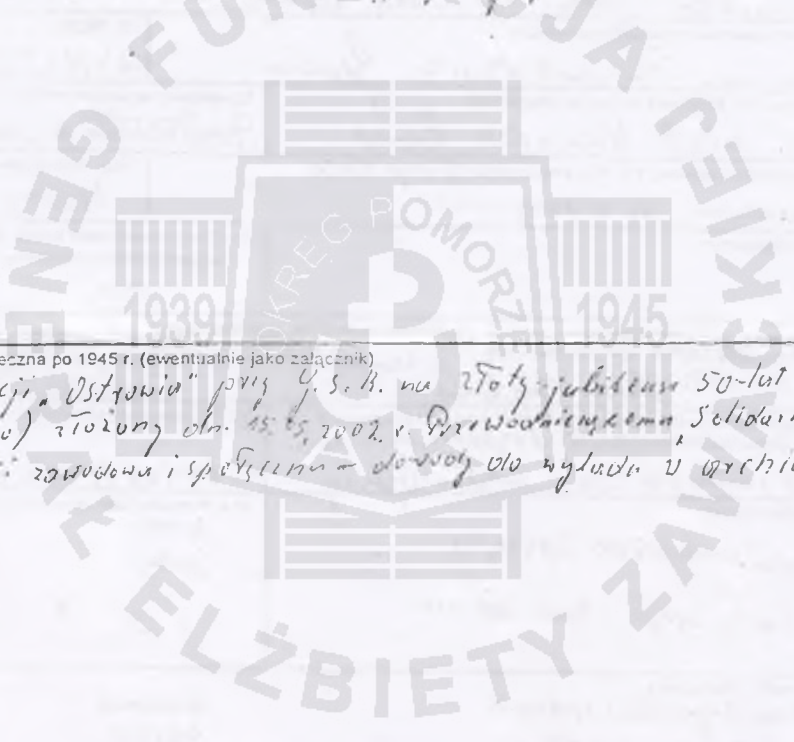 FUNDACJA
GENERAŁ ELŻBIETY ZAWACKIEJ
OKRĘG POMORZE
1939
1945
A
eczna po 1945 r. (ewentualnie jako załącznik)
cji „Ostrowia" przy J.S.K. na złoty jubileum 50-lat
o) złożony dn. 15.05.2002 r. Przewodniczącemu Solidar
zawodowa i społeczna – dowody do wglądu w archi